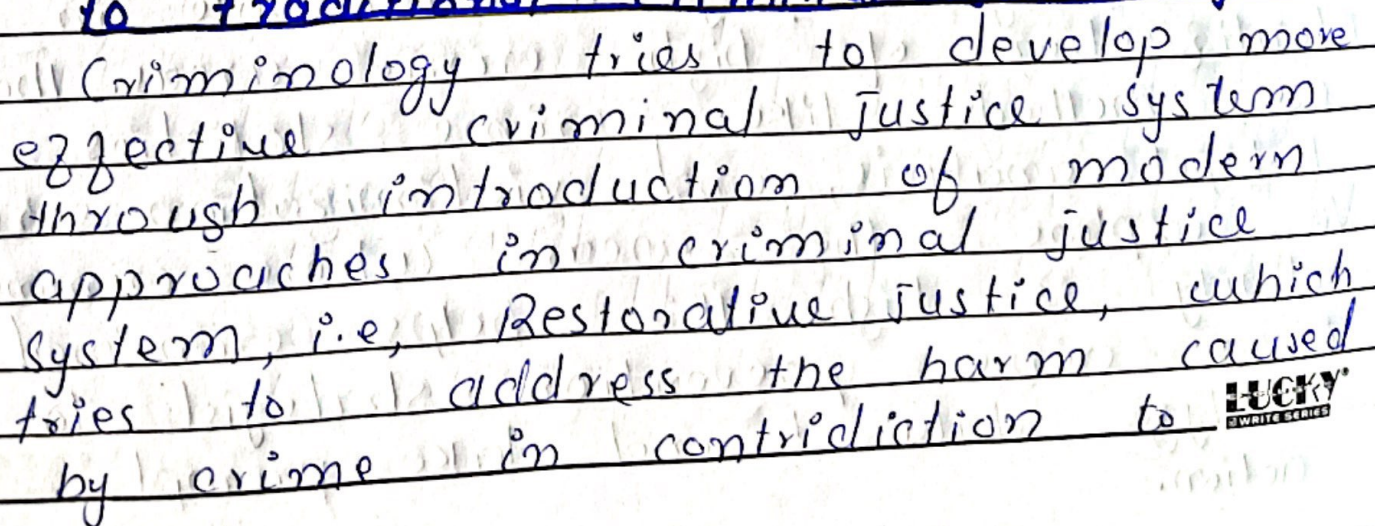 to traditional
Criminology tries to develop more
effective criminal justice system
through introduction of modern
approaches in criminal justice
system, i.e, Restorative justice, which
tries to address the harm caused
by crime in contridiction to
LUCKY
WRITE SERIES